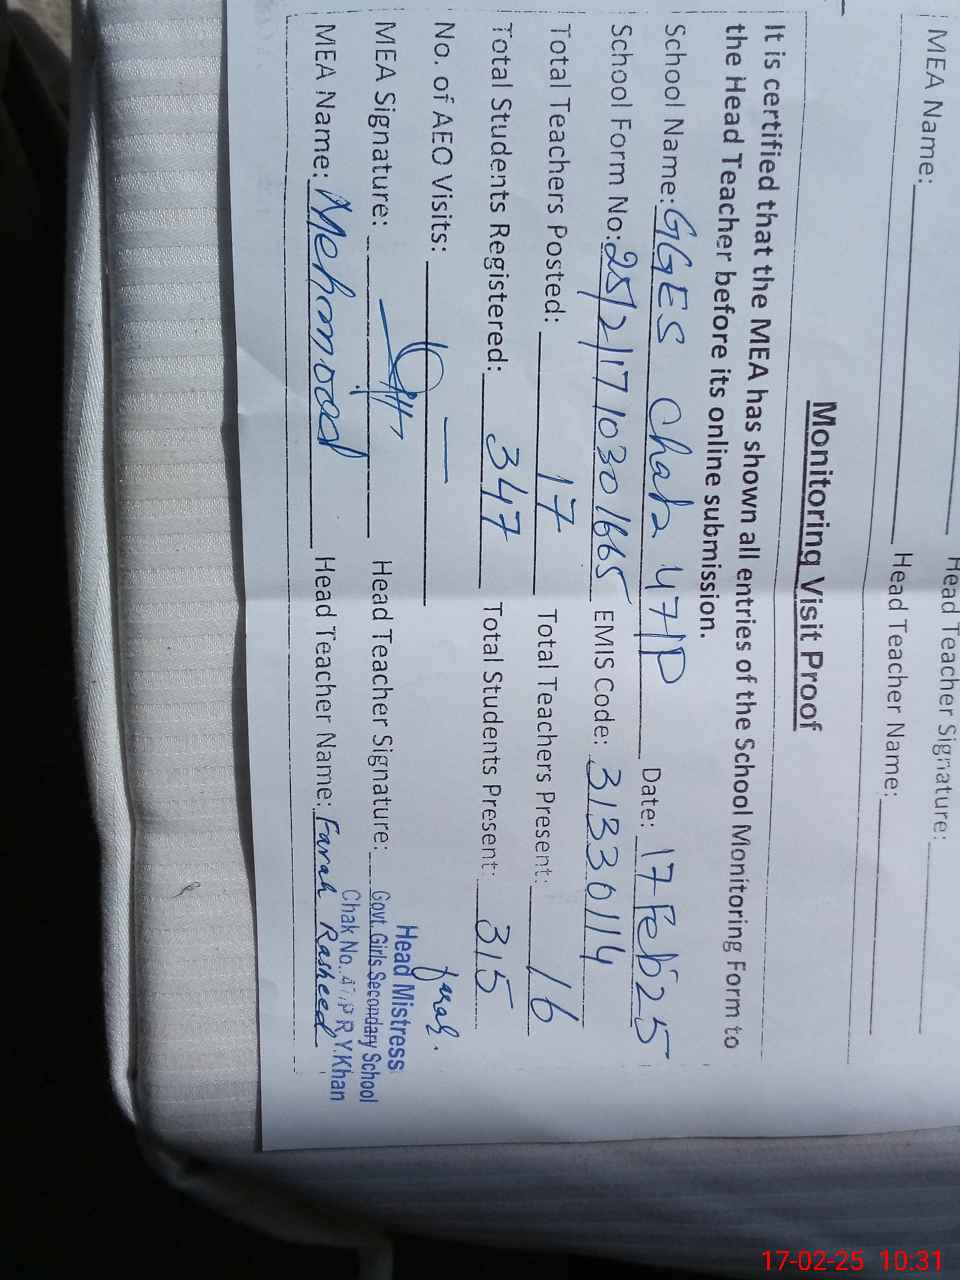 MEA Name:
Head Teacher Signature:
Head Teacher Name:
Monitoring Visit Proof
It is certified that the MEA has shown all entries of the School Monitoring Form to
the Head Teacher before its online submission.
School Name: GGES Chak 47/P Date: 17 Feb 25
School Form No: 25/2/1710301665 EMIS Code: 31330114
Total Teachers Posted: 17 Total Teachers Present: 16
Total Students Registered: 347 Total Students Present: 315
No. of AEO Visits: —
MEA Signature: Head Teacher Signature: farah.
Head Mistress
Govt. Girls Secondary School
Chak No. 47/P R.Y.Khan
MEA Name: Mehmood Head Teacher Name: Farah Rasheed
17-02-25 10:31